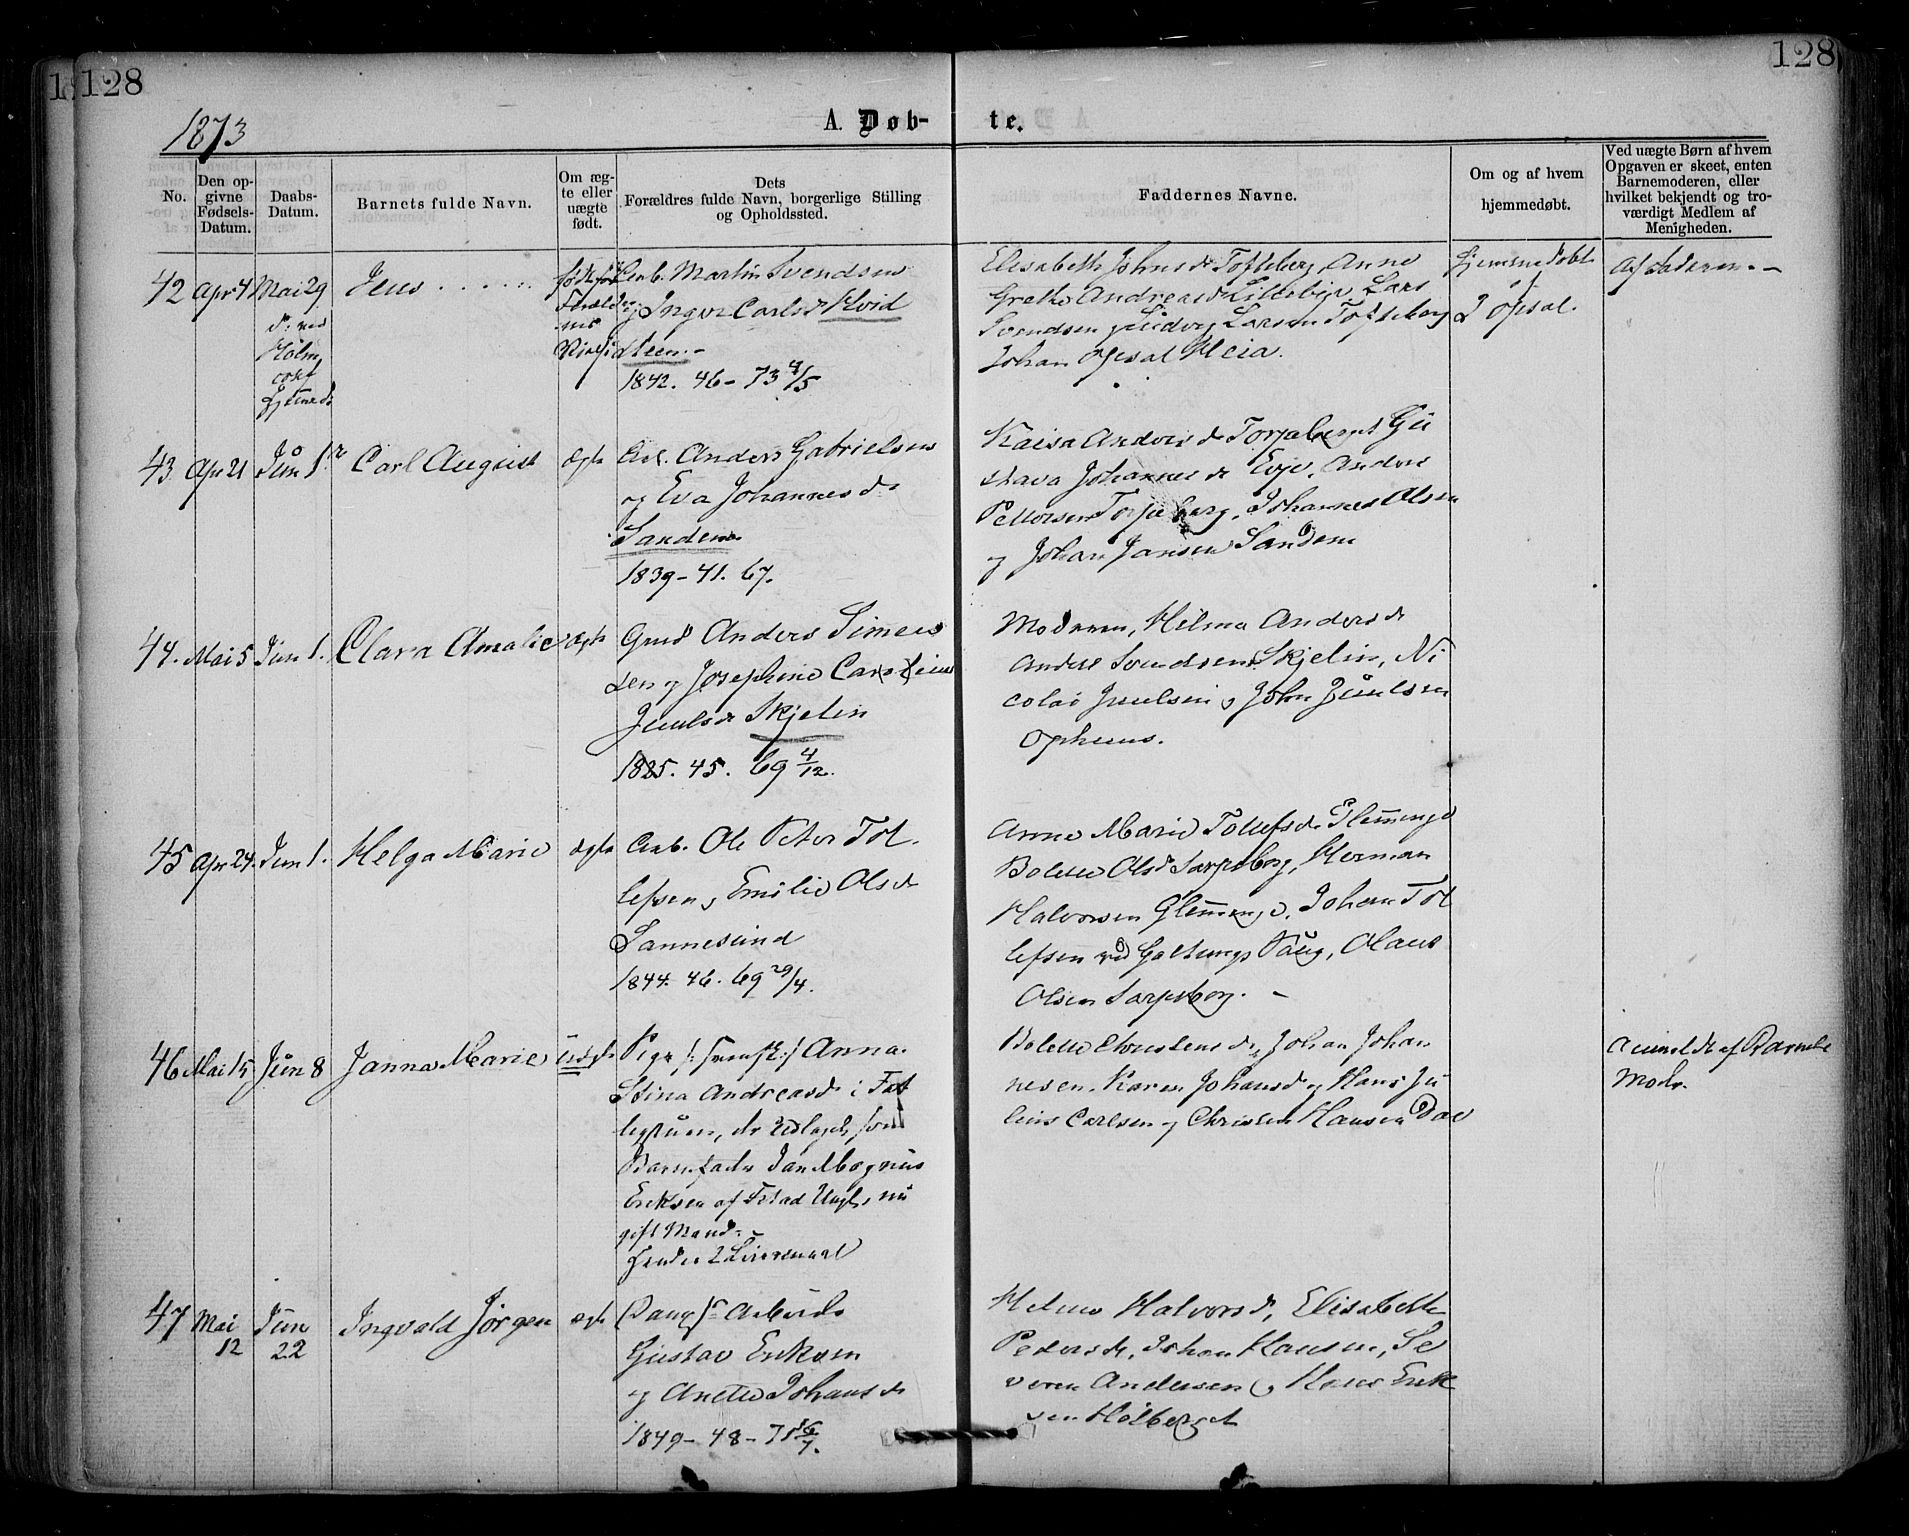 128
128
1873
A. Døb- te.
No.
Den op-
givne
Fødsels-
Datum.
Daabs-
Datum.
Barnets fulde Navn.
Om æg-
te eller
uægte
født.
Dets
Forældres fulde Navn, borgerlige Stilling
og Opholdssted.
Faddernes Navne.
Om og af hvem
hjemmedøbt.
Ved uægte Børn af hvem
Opgaven er skeet, enten
Barnemoderen, eller
hvilket bekjendt og tro-
værdigt Medlem af
Menigheden.
42 Apr 4 Mai 29 Jens
Arb. Martin Svendsen
og Inger Carlsd Hvid
steen.-
1842. 46 - 73 4/5
Elisabeth Johnsd Tofteberg, Anne
Grethe Andreasd Lillebye, Lars
Svendsen, Ludvig Larsen Tofteberg
Johan Opsal Heia.
Hjemmedøbt
Opsal.
Af Faderen.-
43 Apr 21 Jun 1 Carl August ægte
Arb. Anders Gabrielsen
og Eva Johannesd
Sanden
1839 - 41. 67.
Kaisa Andersd Torpeberget Gu
stava Johannesd Evje, Anders
Pettersen Torpeberg, Johannes Olsen
og Johan Jansen Sanden
44. Mai 5 Jun 1. Clara Amalie ægte
Grd Anders Simen
sen og Josephine
Juulsd Skjelin
1825. 45. 69 4/12.
Moderen, Hilma Andersd
Andr. Svendsen Skjelin, Ni
colai Juulsen, John Juulsen
Opheim.
45 Apr 24. Jun 1. Helga Marie ægte
Arb. Ole Peter Tol
lefsen, Emilie Olsd
Sannesund
1844. 46. 69 29/4.
Anne Marie Tollefsd Glemminge
Bolette Olsd Sarpsborg, Herman
Halvorsen Glemminge, Johan Tol
lefsen ved Galtungs, Olaus
Olsen Sarpsborg. -
46 Mai 15 Jun 8 Janna Marie Uægte
Pige /: svensk :/ Anna
Stina Andreasd i
der Udlagde som
Barnefader Jan Magnus
Eriksen af Ungk, nu
gift Mand. -
Hendes 2 Leiermaal
Bolette Christensd, Johan Johan
nesen, Karen Johansd og Hans Ju
lius Carlsen og Christen Hansen Dae
Anmeldt af Barnets
Moder.
47 Mai
12 Jun
22 Ingvald Jørgen ægte
Arbeider
Gustav Eriksen
og Anette Johansd
1849 - 48 - 71 16/7.
Helene Halvorsd, Elisabeth
Pedersd, Johan Hansen, Se
veren Andersen og Hans Erik
sen Holberget